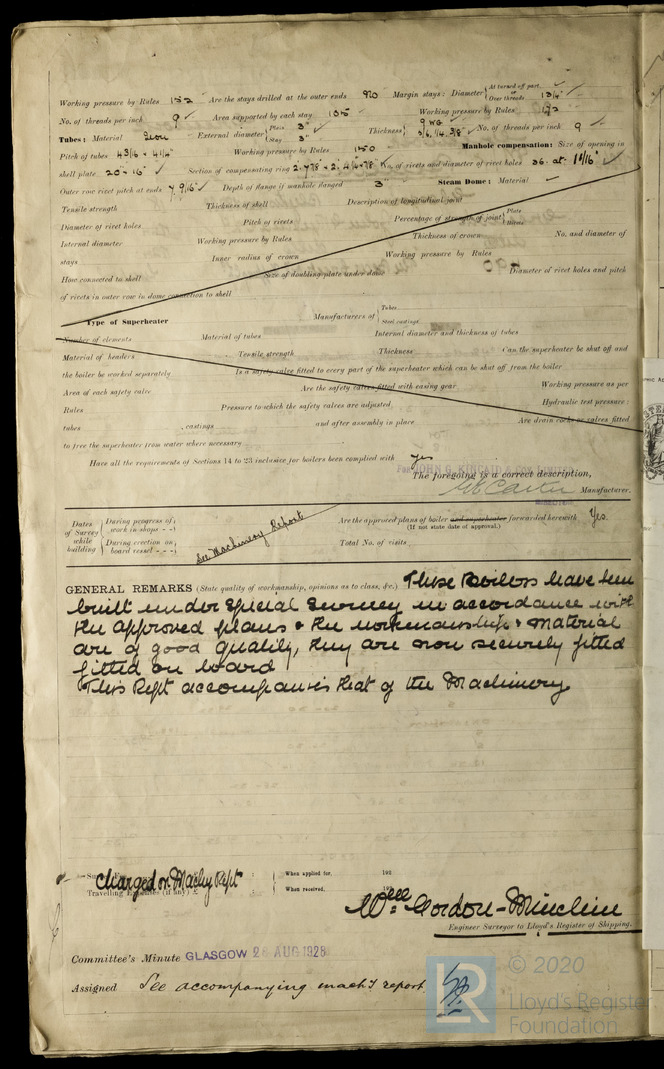 Working pressure by Rules 152 Are the stays drilled at the outer ends No Margin stays: Diameter { At turned off part, or Over threads 1 3/4"
No. of threads per inch 9 Area supported by each stay Working pressure by Rules 172
Tubes: Material Iron External diameter { Plain 3" Stay 3" Thickness { 9 WG 5/16, 1/4, 3/8" No. of threads per inch 9
Pitch of tubes 4 3/16 x 4 1/4" Working pressure by Rules 150 Manhole compensation: Size of opening in
shell plate 20" x 16" Section of compensating ring No. of rivets and diameter of rivet holes 36 at 1 1/16"
Outer row rivet pitch at ends 7 9/16" Depth of flange if manhole flanged 3" Steam Dome: Material
Tensile strength Thickness of shell Description of longitudinal joint
Diameter of rivet holes Pitch of rivets Percentage of strength of joint { Plate Rivets
Internal diameter Working pressure by Rules Thickness of crown No. and diameter of
stays Inner radius of crown Working pressure by Rules
How connected to shell Size of doubling plate under dome Diameter of rivet holes and pitch
of rivets in outer row in dome connection to shell
Type of Superheater Manufacturers of { Tubes Steel castings
Number of elements Material of tubes Internal diameter and thickness of tubes
Material of headers Tensile strength Thickness Can the superheater be shut off and
the boiler be worked separately Is a safety valve fitted to every part of the superheater which can be shut off from the boiler
Area of each safety valve Are the safety valves fitted with easing gear Working pressure as per
Rules Pressure to which the safety valves are adjusted Hydraulic test pressure:
tubes , castings and after assembly in place Are drain cocks or valves fitted
to free the superheater from water where necessary
Have all the requirements of Sections 14 to 23 inclusive for boilers been complied with Yes
For JOHN G. KINCAID & CO. LIMITED
The foregoing is a correct description,
Manufacturer.
Dates of Survey while building { During progress of work in shops - - During erection on board vessel - - - See Machinery Report
Are the approved plans of boiler and superheater forwarded herewith Yes.
(If not state date of approval.)
Total No. of visits
GENERAL REMARKS (State quality of workmanship, opinions as to class, &c.) These Boilers have been
built under special survey in accordance with
the approved plans & the workmanship & material
are of good quality, they are now securely fitted
fitted on board
This Rept accompanies that of the Machinery
Charged on Machy Rept
Travelling Expenses (if any) £
When applied for, 192
When received, 192
Wm Gordon-Minchin
Engineer Surveyor to Lloyd's Register of Shipping.
Committee's Minute GLASGOW 28 AUG 1928
Assigned See accompanying machy report
© 2020
LR Lloyd's Register
Foundation